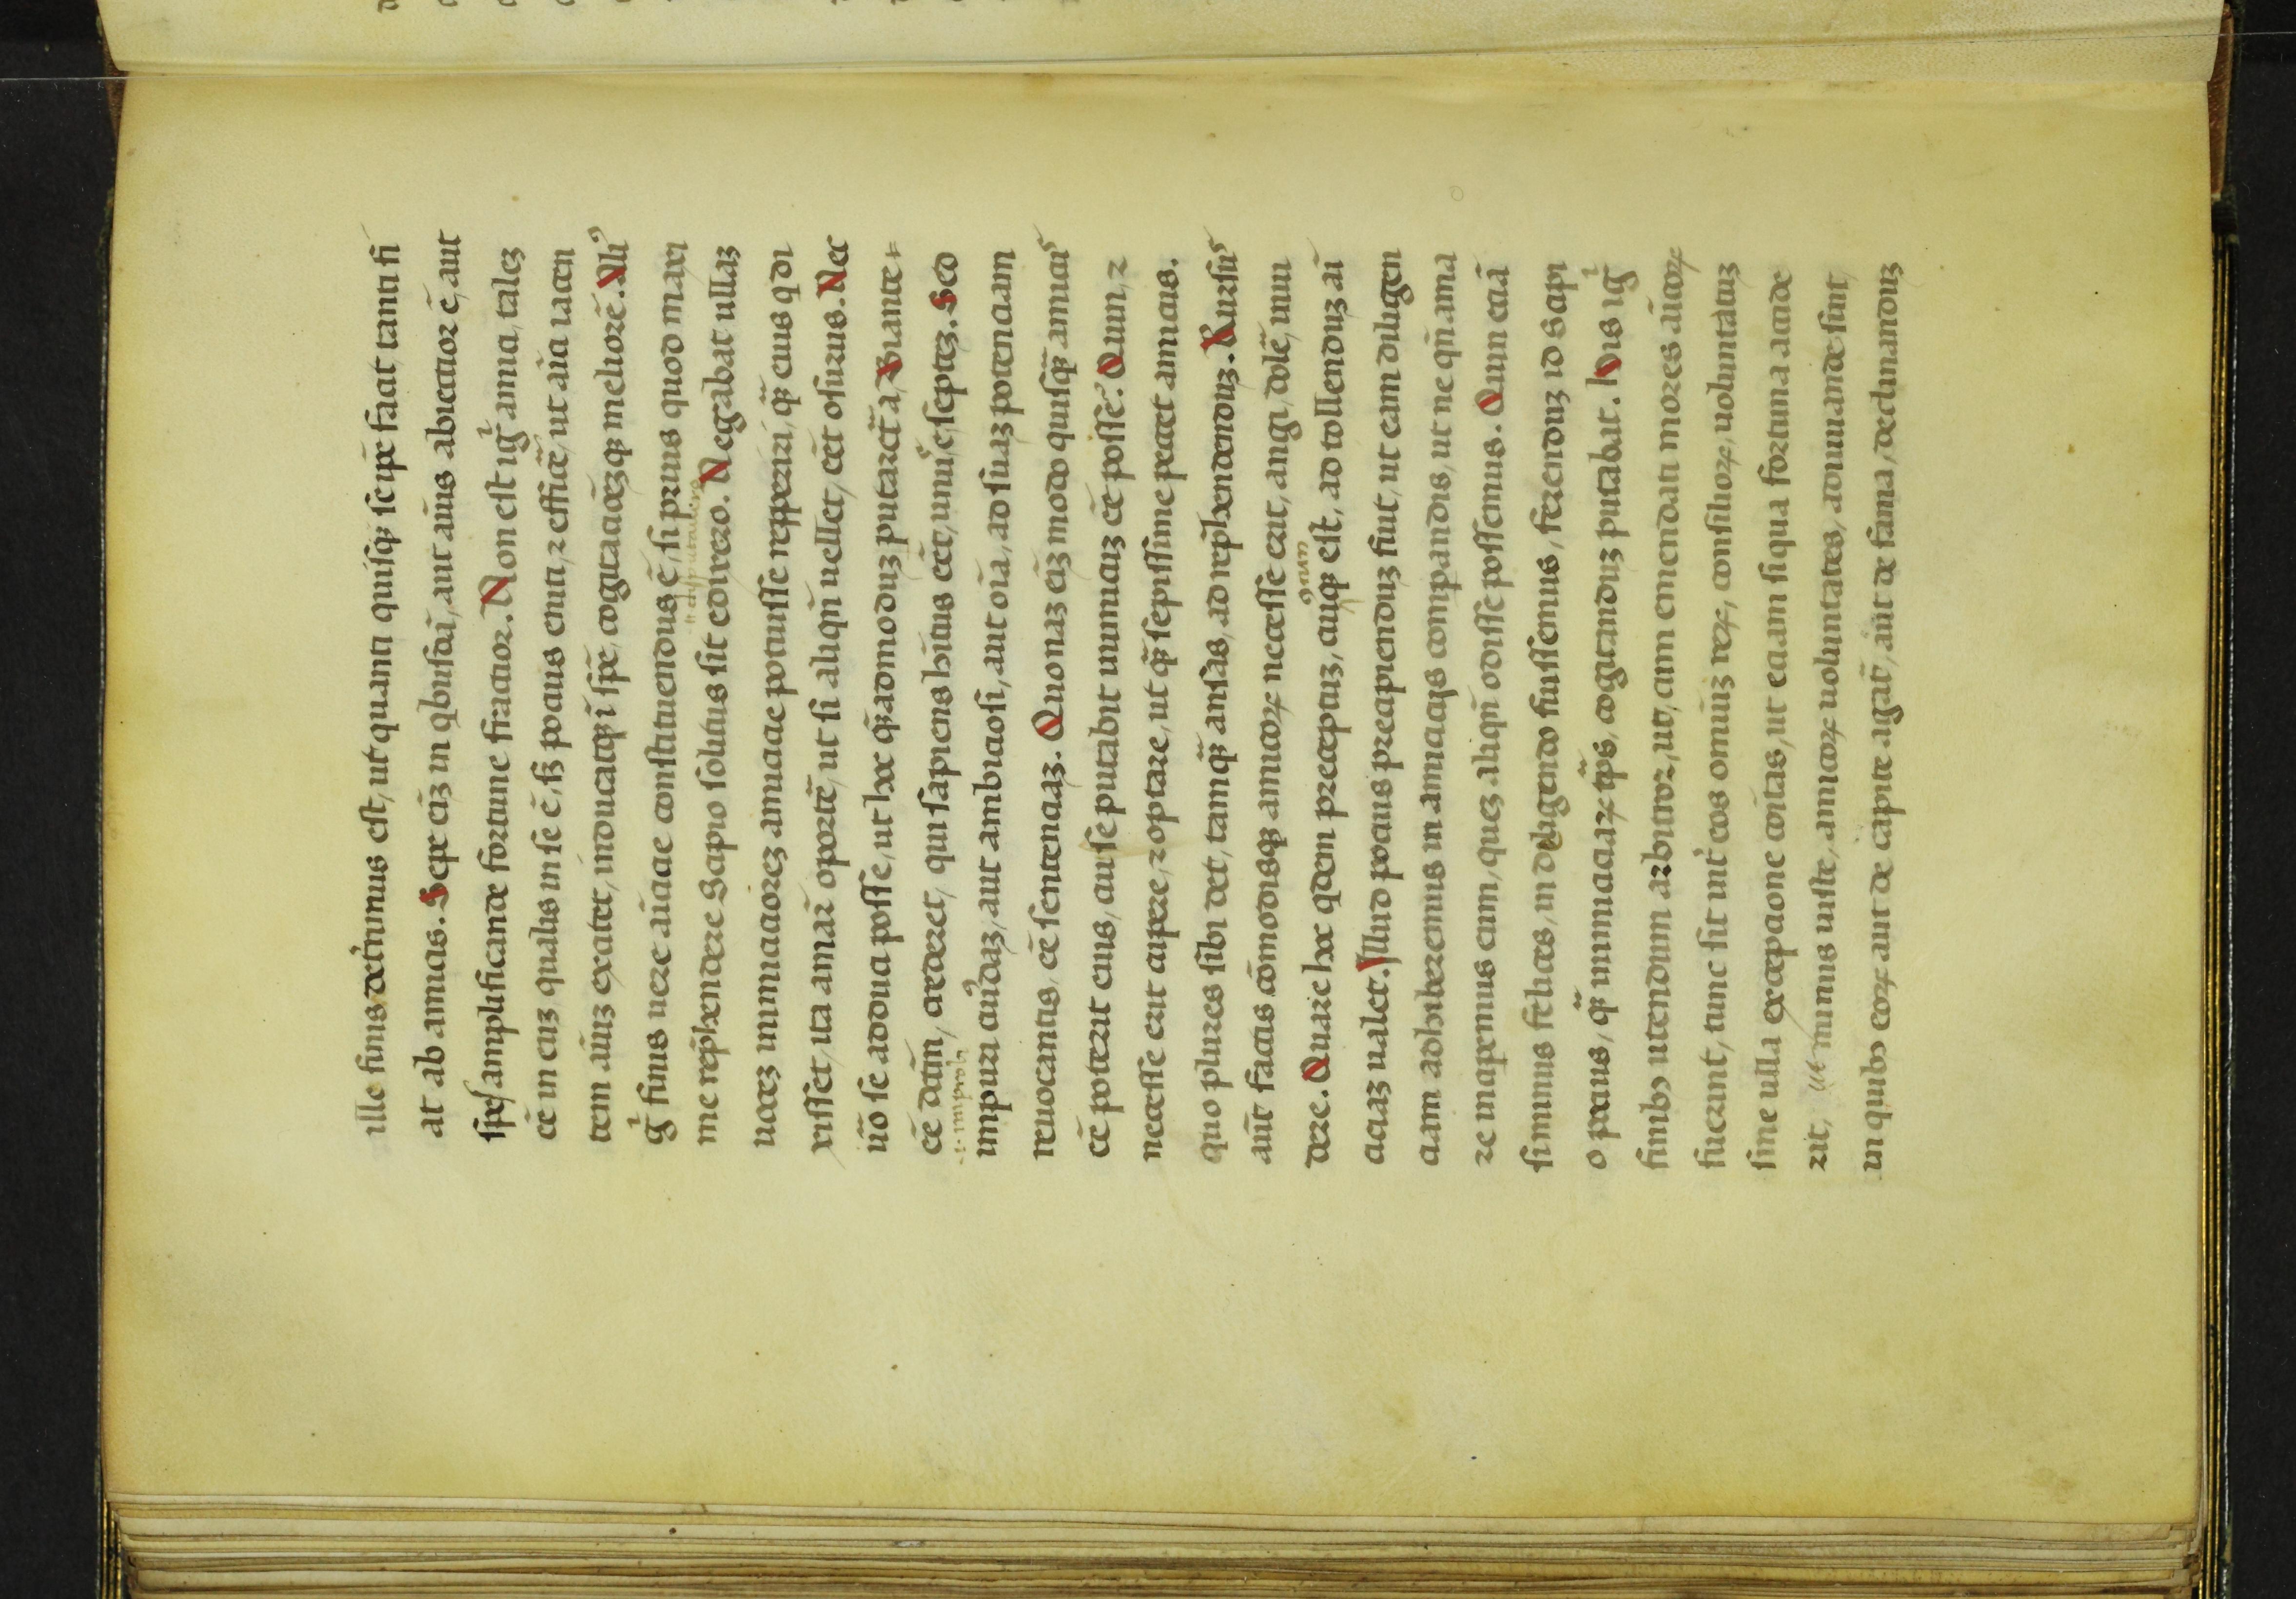 ille finis deṫrimus est, ut quanti quisqꝫ seip̃e faciat, tanti fi
at ab amicis. Sepe eīz in qbusdā, aut aĩus abiectior ē, aut
spes amplificande fortune fractior. Non est igⁱ amici, talez
cē in euz qualis in se ē, sꝫ potius eniti, ⁊ efficẽ, ut aĩci iacen
tem aĩuz excitet, inducatqꝫ ī spẽ, cogitatiōez qꝫ meliorē. Aliꝰ
gⁱ finis uere aĩcitiae constituendus ē, si prius quod maxi
me rep̃hendere Sapio solitus sit edixero. Negabat ullaz
uocez inimicitiorez amicitiae potuisse repperiri, q̃ꝫ eius q di
xisset, ita amar̃ oportē, ut si aliqñ uellet, eēt osurus. Nec
uō se adduci posse, ut hoc q̃ꝫadmoduz putareť̃ a Biante
cē dc̃m, crederet, qui sapiens hĩtus eēt, unuˢ e septez. Sed
impuri cuiꝰdaz, aut ambitiosi, aut oĩa, ad suaz potentiam
reuocantis, cē sententiaz. Quonaz eīz modo quisq̃ꝫ amicuˢ
cē poterit eius, cui se putabit inimicuz cē posse. Quin, ⁊
necesse erit cupere, ⁊ optare, ut q̃ꝫ sepissime peccet amicus.
quo plures sibi det, tamq̃ꝫ ansas, ad rep̃hendenduz. Rursuˢ
aũt factis cōmodisqꝫ amicoꝝ necesse erit, angi, dolẽ, inui
dere. Quare hoc qdem preceptuz, cuiꝰqꝫ est, ad tollenduz aĩ
citiaz ualet. Illud potius precipienduz fuit, ut eam diligen
tiam adhiberemus in amicitijs comparandis, ut ne qñ ama
re inciperemus eum, quez aliqñ odisse possemus. Quin etiā
si minus felices, in deligendo fuissemus, ferenduz id Sapi
o potius, q̃ꝫ inimicitiaꝝ tp̃s, cogitanduz putabat. His igⁱ
finibꝫ utendum arbitror, ut, cum emendati mores aĩcoꝝ
fuerint, tunc sit inṫ eos omniuz reꝝ, consilioꝝ, uoluntatuz
sine ulla exceptione coĩtas, ut etiam siqua fortuna accide
rit, ut minus iuste, amicoꝝ uoluntates, adiuuande sint,
in quibꝫ eoꝝ aut de capite agaẗ, aut de fama, declinanduz